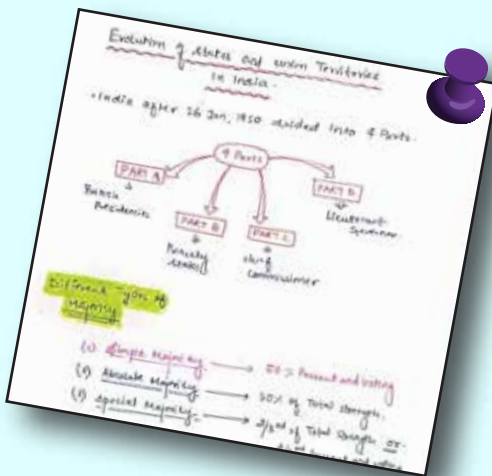 Evolution of States and Union Territories
In India.
• India after 26 Jan, 1950 divided into 4 Parts.
4 Parts
PART A
British
Presidencies
PART B
Princely
states
PART C
chief
commissioner
PART D
Lieutenant
Governor
Different Types of
Majority
(1) Simple Majority. → 50% Present and voting
(2) Absolute Majority → 50% of Total strength.
Special Majority. → 2/3rd of Total Strength or